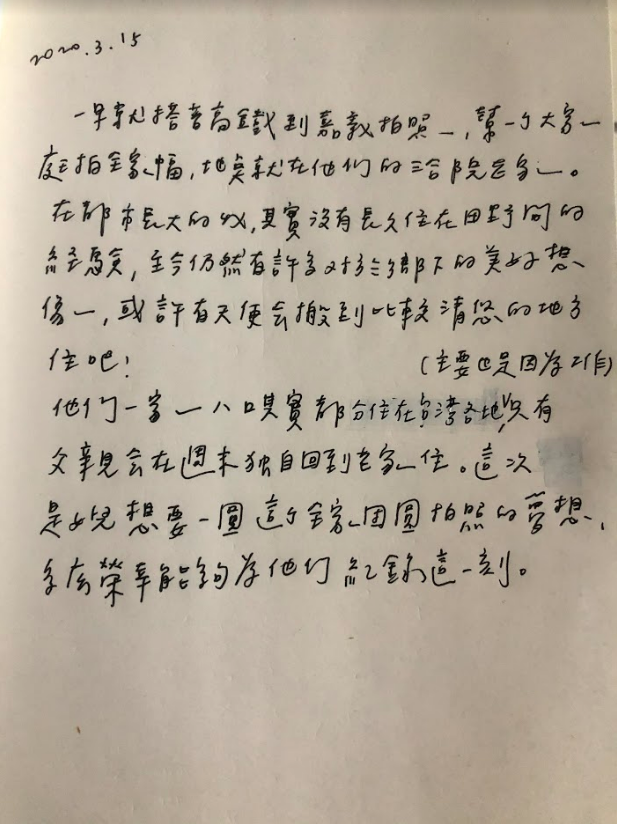 2020.3.15
一早就搭著高鐵到嘉義拍照，幫一个大家
庭拍全家幅，地點就在他們的三合院老家。
在都市長大的我，其實沒有長久住在田野間的
經驗，至今仍然有許多對於鄉下的美好想
像，或許有天便会搬到比較清悠的地方
住吧！
(主要也是因為工作)
他們一家八口其實都分住在台灣各地，只有
父親会在週末独自回到老家住。這次
是女兒想要一圓這个全家团圓拍照的夢想，
多么榮幸能夠為他們紀錄這一刻。